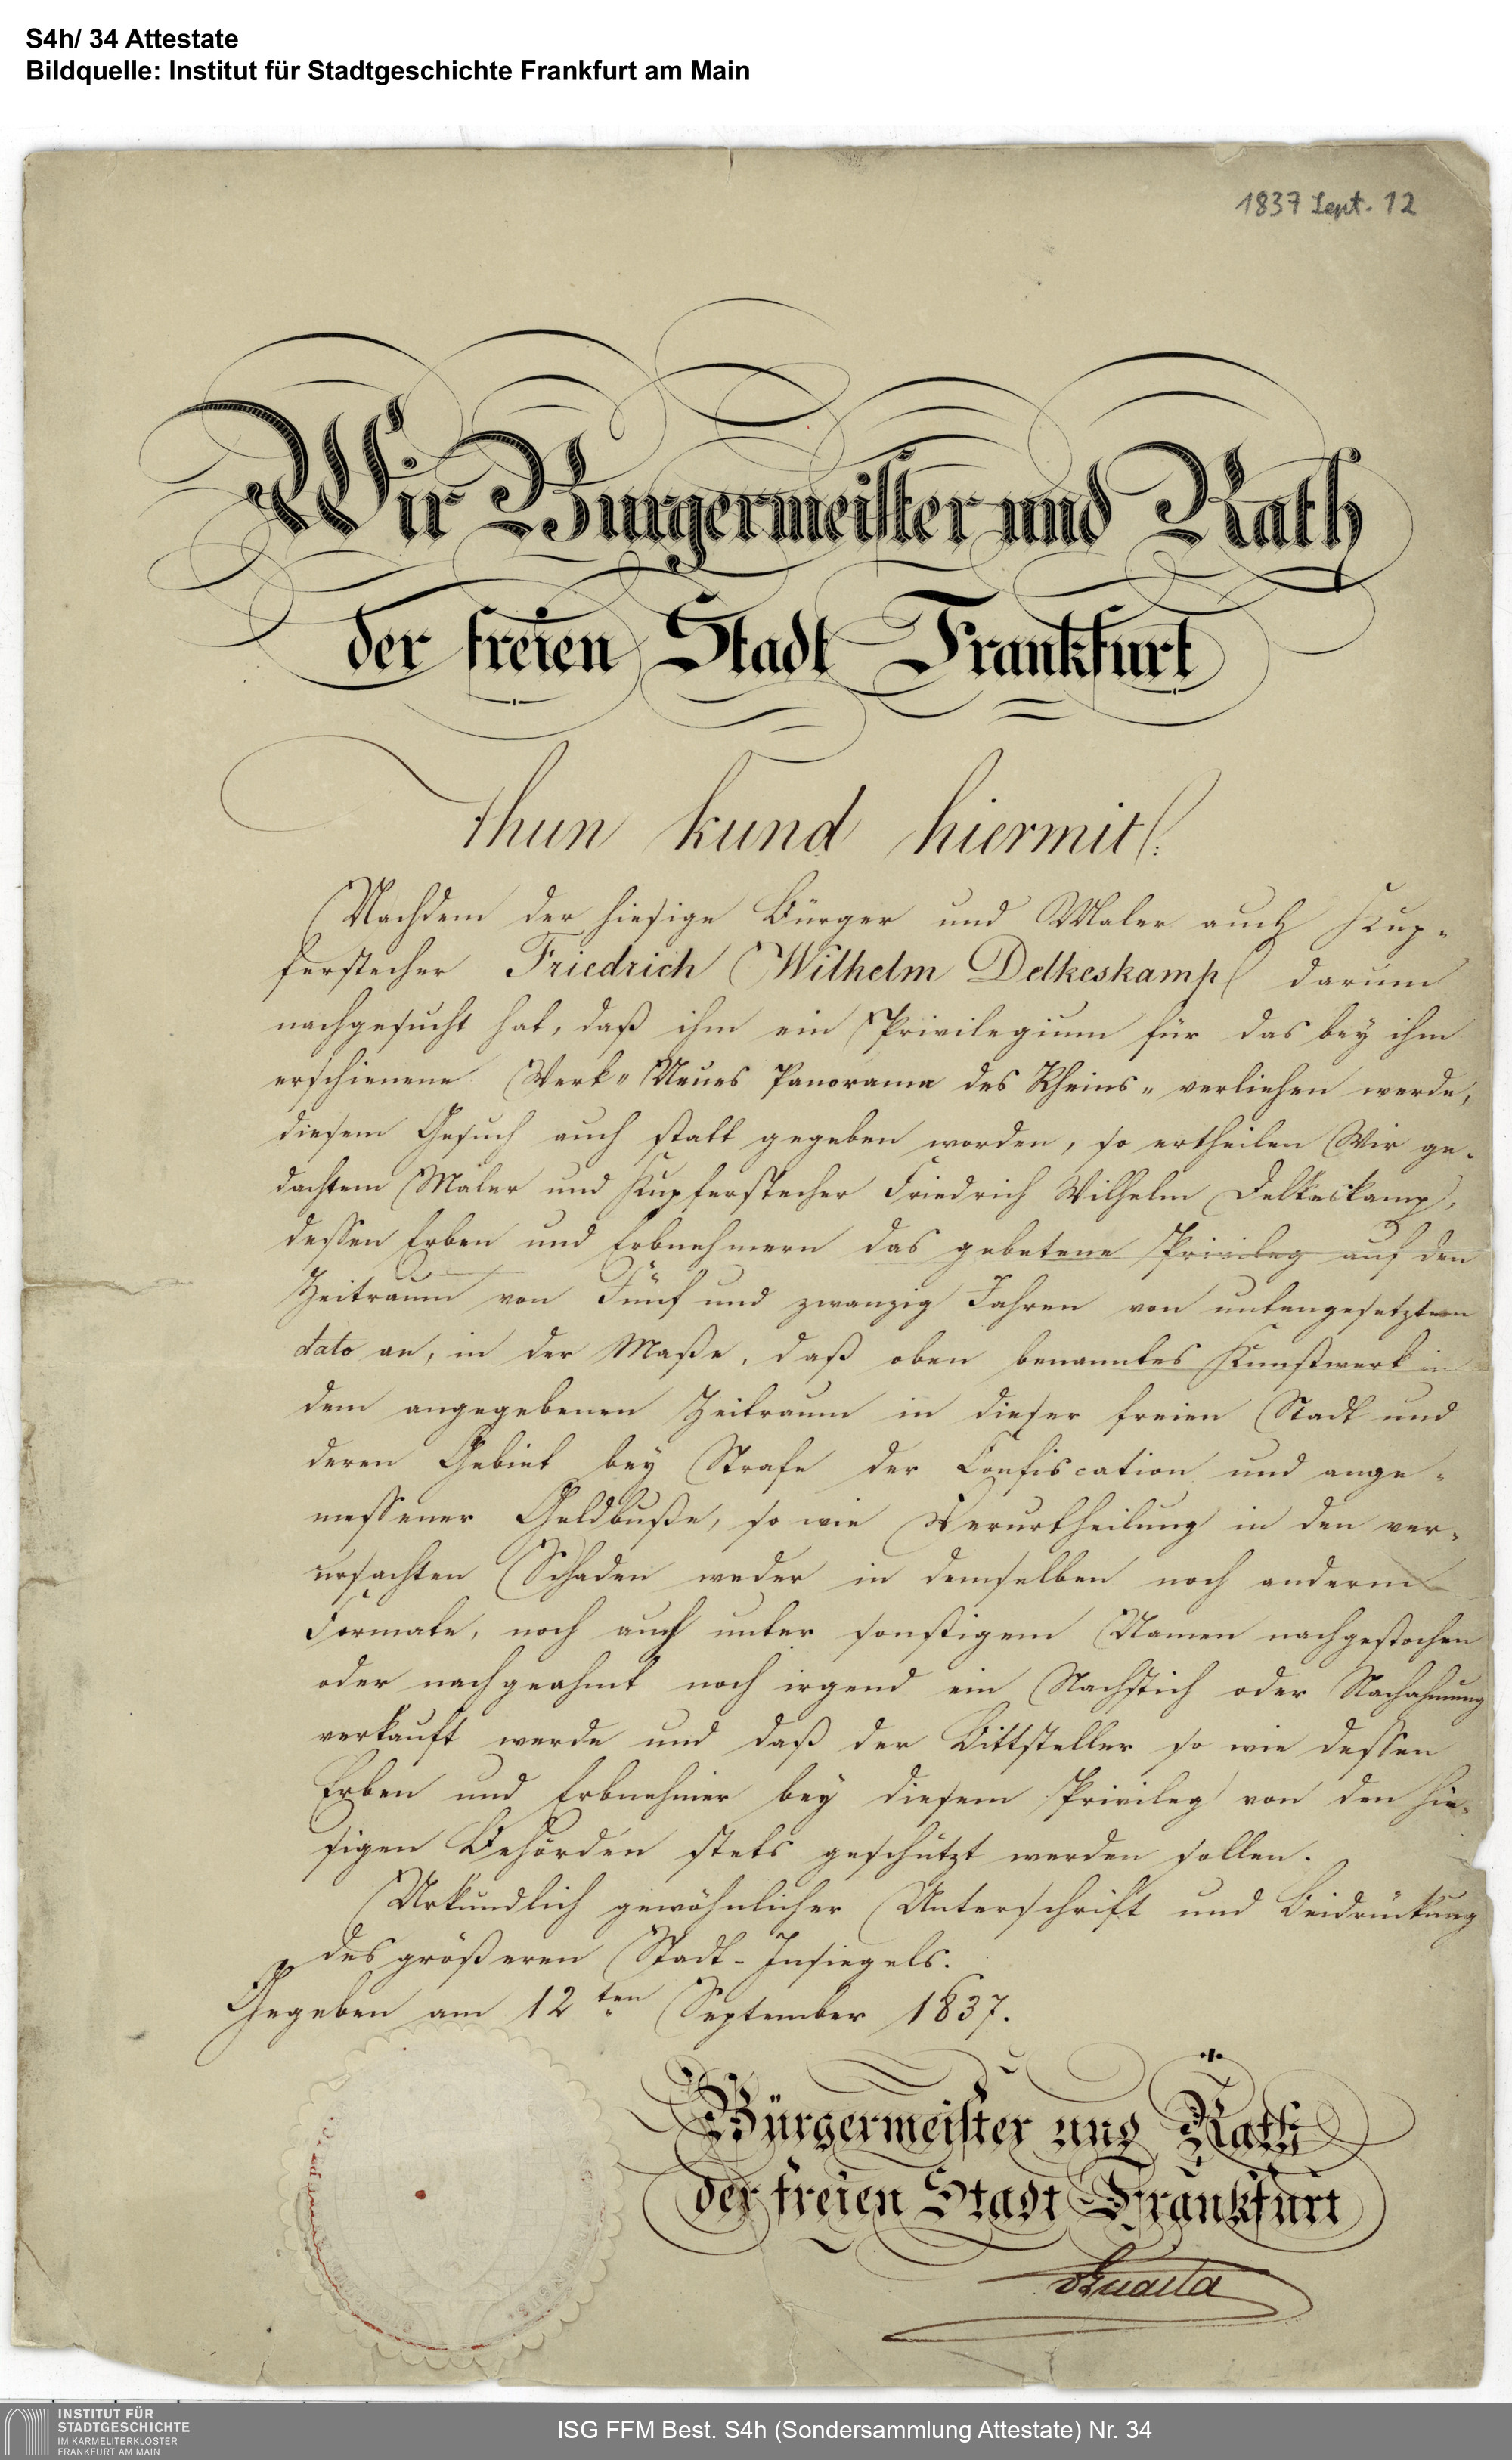 S4h/ 34 Attestate
Bildquelle: Institut für Stadtgeschichte Frankfurt am Main
1837 Sept. 12
Wir Burgermeister und Rath
der freien Stadt Frankfurt
thun kund hiermit:
Nachdem der hiesige Bürger und Maler auch Kup-
ferstecher Friedrich Wilhelm Delkeskamp darum
nachgesucht hat, daß ihm ein Privilegium für das bey ihm
erschienene Werk „Neues Panorama des Rheins„ verliehen werde,
diesem Gesuch auch statt gegeben worden, so ertheilen Wir ge-
dachtem Maler und Kupferstecher Friedrich Wilhelm Delkeskamp,
dessen Erben und Erbnehmern das gebetene Privileg auf den
Zeitraum von Fünf und zwanzig Jahren von untengesetztem
dato an, in der Maße, daß oben benanntes Kunstwerk in
dem angegebenen Zeitraum in dieser freien Stadt und
deren Gebiet bey Strafe der Confiscation und ange-
messener Geldbuße, so wie Verurtheilung in den ver-
ursachten Schaden weder in demselben noch anderm
Formate, noch auch unter sonstigem Namen nachgestochen
oder nachgeahmt noch irgend ein Nachstich oder Nachahmung
verkauft werde und daß der Bittsteller so wie dessen
Erben und Erbnehmer bey diesem Privileg von den hie-
sigen Behörden stets geschützt werden sollen.
Urkundlich gewöhnlicher Unterschrift und Beidrückung
des größeren Stadt-Insiegels.
Gegeben am 12ten September 1837.
Bürgermeister und Rath
der freien Stadt Frankfurt
INSTITUT FÜR
STADTGESCHICHTE
IM KARMELITERKLOSTER
FRANKFURT AM MAIN
ISG FFM Best. S4h (Sondersammlung Attestate) Nr. 34